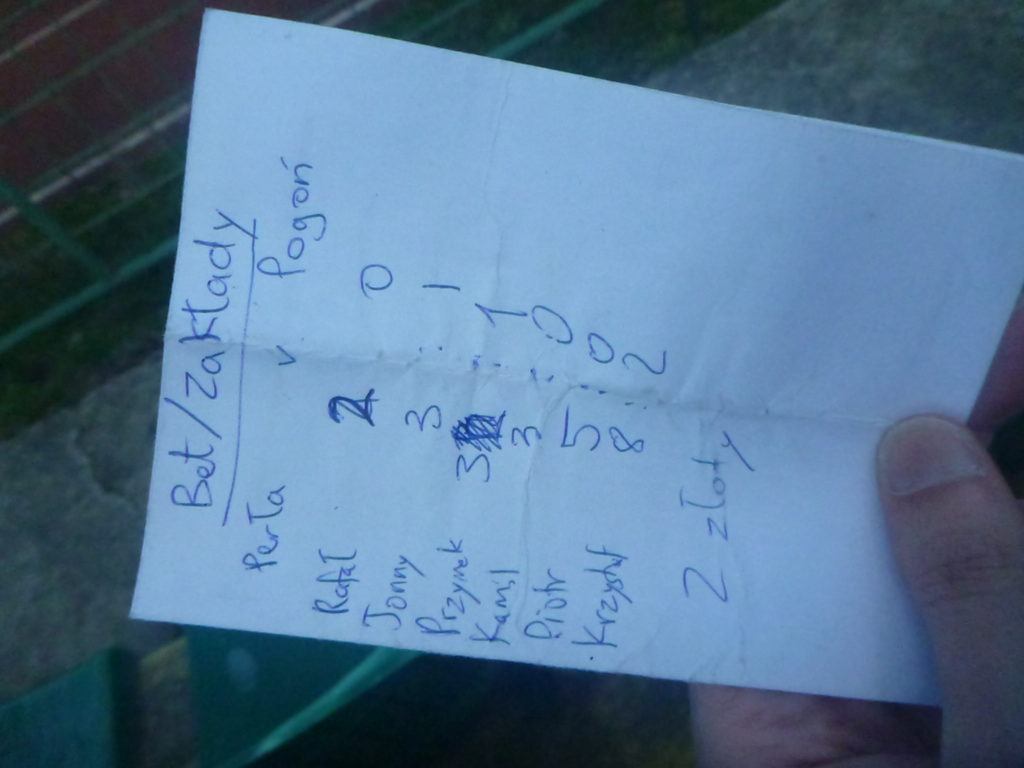 Bet/Zakłady
Perła v Pogoń
Rafał 2 0
Jonny 3 : 1
Przymek 3 : 1
Kamil 3 : 0
Piotr 5 : 0
Krzysztof 8 : 2
2 złoty